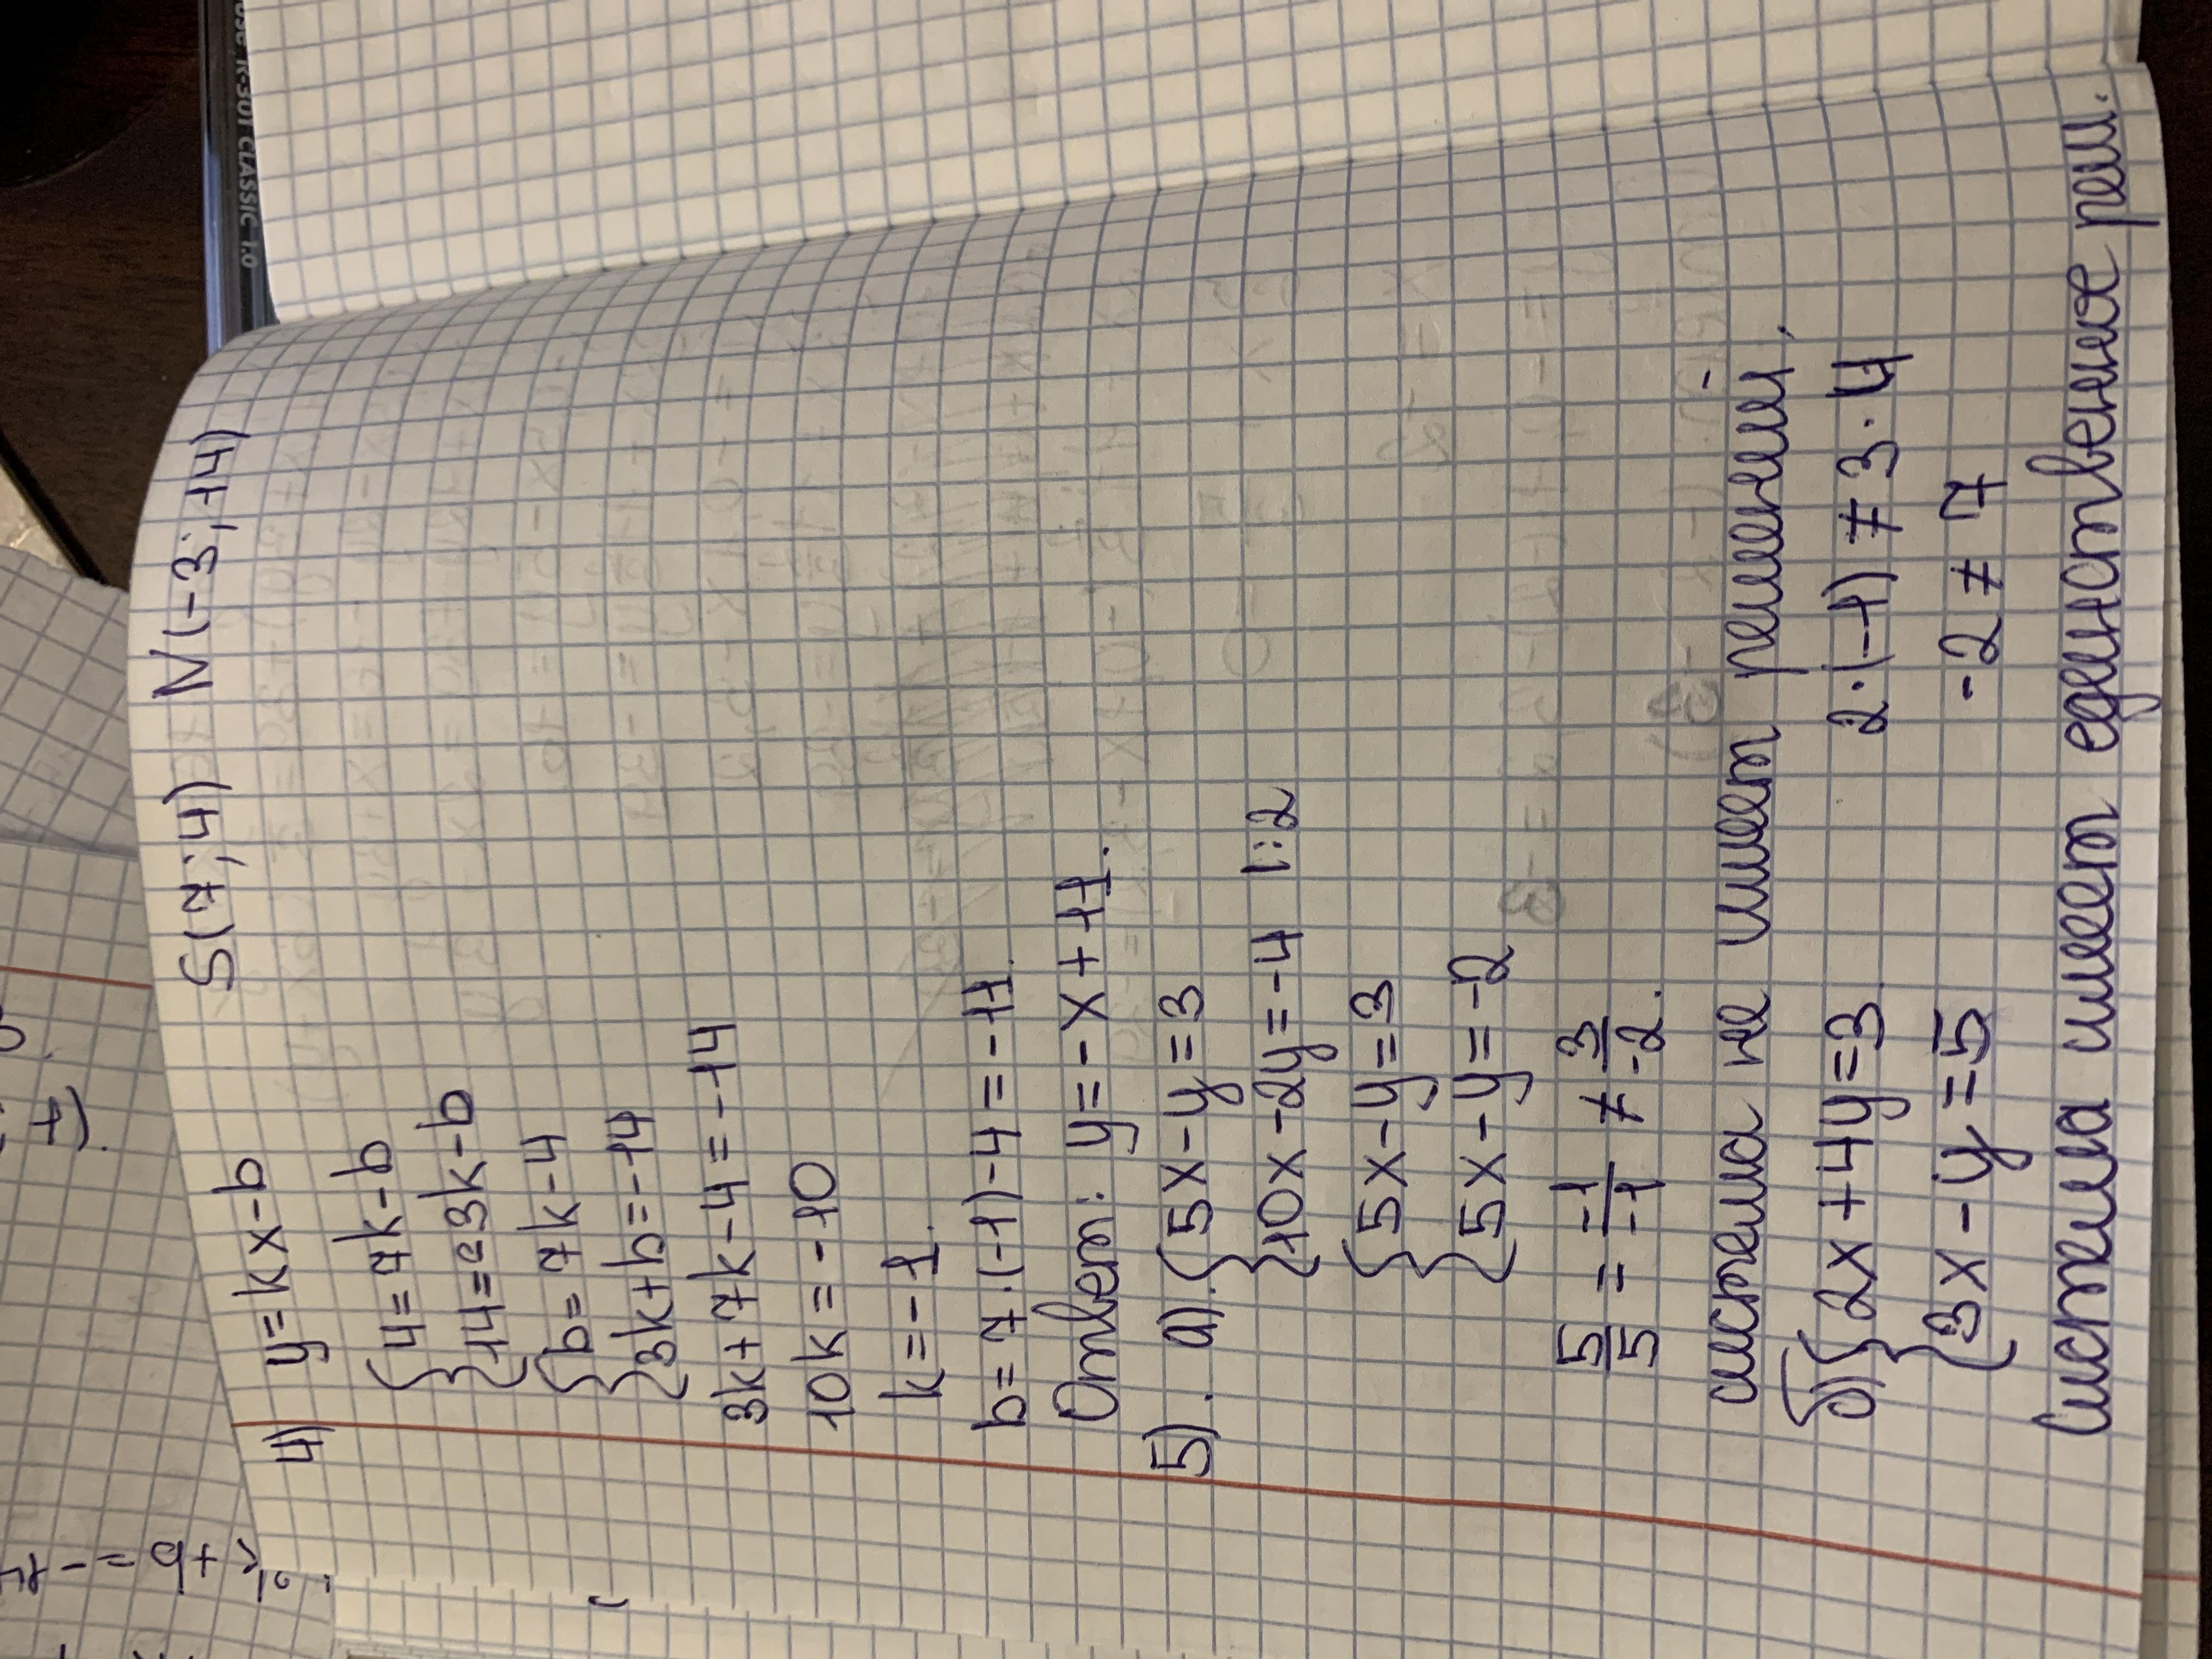 4) y=kx-b S(7;4) N(-3;14)
{4=7k-b
{14=-3k-b
{b=7k-4
{3k+b=-14
3k+7k-4=-14
10k=-10
k=-1.
b=7·(-1)-4=-11.
Ответ: y=-x+11.
5). а). {5x-y=3
{10x-2y=-4 |:2
{5x-y=3
{5x-y=-2
5/5 = -1/-1 ≠ 3/-2.
система не имеет решений,
б) {2x+4y=3 2·(-1)≠3·4
{3x-y=5 -2≠7
Система имеет единственное реш.
R-301 CLASSIC 1.0